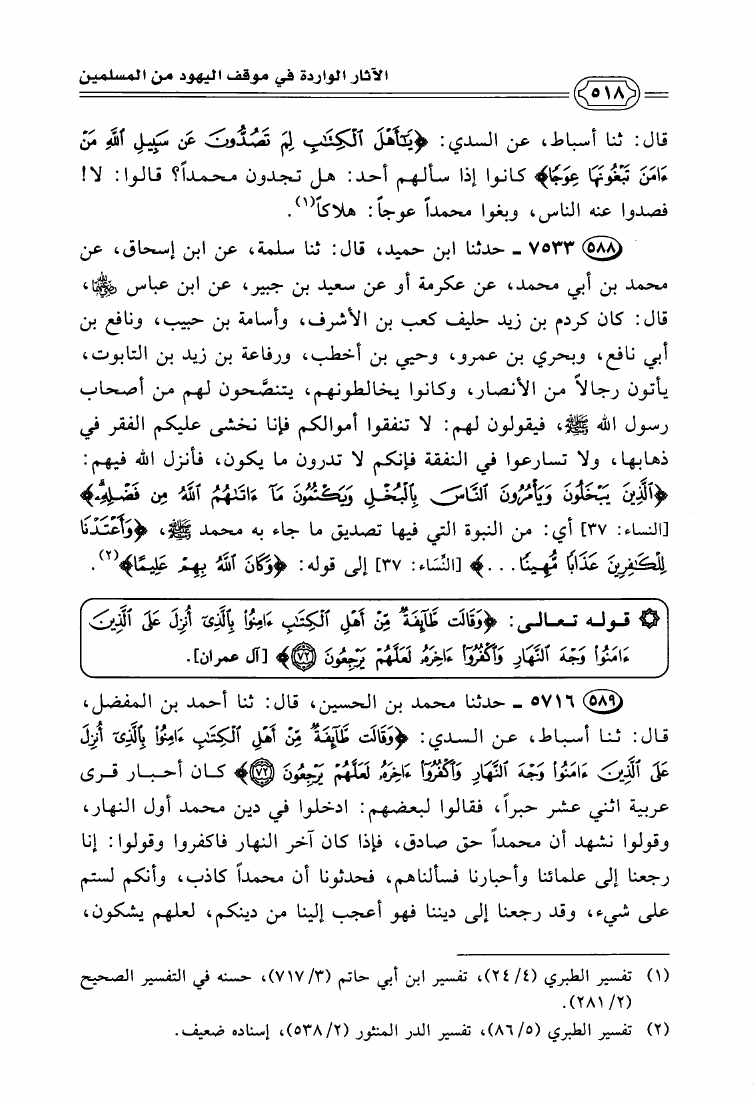 الآثار الواردة في موقف اليهود من المسلمين
٥١٨
قال: ثنا أسباط، عن السدي: ﴿يَٰٓأَهْلَ ٱلْكِتَٰبِ لِمَ تَصُدُّونَ عَن سَبِيلِ ٱللَّهِ مَنْ
ءَامَنَ تَبْغُونَهَا عِوَجًا﴾ كانوا إذا سألهم أحد: هل تجدون محمداً؟ قالوا: لا!
فصدوا عنه الناس، وبغوا محمداً عوجاً: هلاكاً(١).
٥٨٨ ٧٥٣٣ ـ حدثنا ابن حميد، قال: ثنا سلمة، عن ابن إسحاق، عن
محمد بن أبي محمد، عن عكرمة أو عن سعيد بن جبير، عن ابن عباس ،
قال: كان كردم بن زيد حليف كعب بن الأشرف، وأسامة بن حبيب، ونافع بن
أبي نافع، وبحري بن عمرو، وحيي بن أخطب، ورفاعة بن زيد بن التابوت،
يأتون رجالاً من الأنصار، وكانوا يخالطونهم، يتنصَّحون لهم من أصحاب
رسول الله ﷺ، فيقولون لهم: لا تنفقوا أموالكم فإنا نخشى عليكم الفقر في
ذهابها، ولا تسارعوا في النفقة فإنكم لا تدرون ما يكون، فأنزل الله فيهم:
﴿ٱلَّذِينَ يَبْخَلُونَ وَيَأْمُرُونَ ٱلنَّاسَ بِٱلْبُخْلِ وَيَكْتُمُونَ مَآ ءَاتَىٰهُمُ ٱللَّهُ مِن فَضْلِهِۦ﴾
[النساء: ٣٧] أي: من النبوة التي فيها تصديق ما جاء به محمد ﷺ، ﴿وَأَعْتَدْنَا
لِلْكَٰفِرِينَ عَذَابًا مُّهِينًا...﴾ [النِّسَاء: ٣٧] إلى قوله: ﴿وَكَانَ ٱللَّهُ بِهِمْ عَلِيمًا﴾(٢).
۞ قوله تعالى: ﴿وَقَالَت طَّآئِفَةٌ مِّنْ أَهْلِ ٱلْكِتَٰبِ ءَامِنُوا۟ بِٱلَّذِىٓ أُنزِلَ عَلَى ٱلَّذِينَ
ءَامَنُوا۟ وَجْهَ ٱلنَّهَارِ وَٱكْفُرُوٓا۟ ءَاخِرَهُۥ لَعَلَّهُمْ يَرْجِعُونَ ٧٢﴾ [آل عمران].
٥٨٩ ٥٧١٦ ـ حدثنا محمد بن الحسين، قال: ثنا أحمد بن المفضل،
قال: ثنا أسباط، عن السدي: ﴿وَقَالَت طَّآئِفَةٌ مِّنْ أَهْلِ ٱلْكِتَٰبِ ءَامِنُوا۟ بِٱلَّذِىٓ أُنزِلَ
عَلَى ٱلَّذِينَ ءَامَنُوا۟ وَجْهَ ٱلنَّهَارِ وَٱكْفُرُوٓا۟ ءَاخِرَهُۥ لَعَلَّهُمْ يَرْجِعُونَ ٧٢﴾ كان أحبار قرى
عربية اثني عشر حبراً، فقالوا لبعضهم: ادخلوا في دين محمد أول النهار،
وقولوا نشهد أن محمداً حق صادق، فإذا كان آخر النهار فاكفروا وقولوا: إنا
رجعنا إلى علمائنا وأحبارنا فسألناهم، فحدثونا أن محمداً كاذب، وأنكم لستم
على شيء، وقد رجعنا إلى ديننا فهو أعجب إلينا من دينكم، لعلهم يشكون،
(١) تفسير الطبري (٢٤/٤)، تفسير ابن أبي حاتم (٧١٧/٣)، حسنه في التفسير الصحيح
(٢٨١/٢).
(٢) تفسير الطبري (٨٦/٥)، تفسير الدر المنثور (٥٣٨/٢)، إسناده ضعيف.